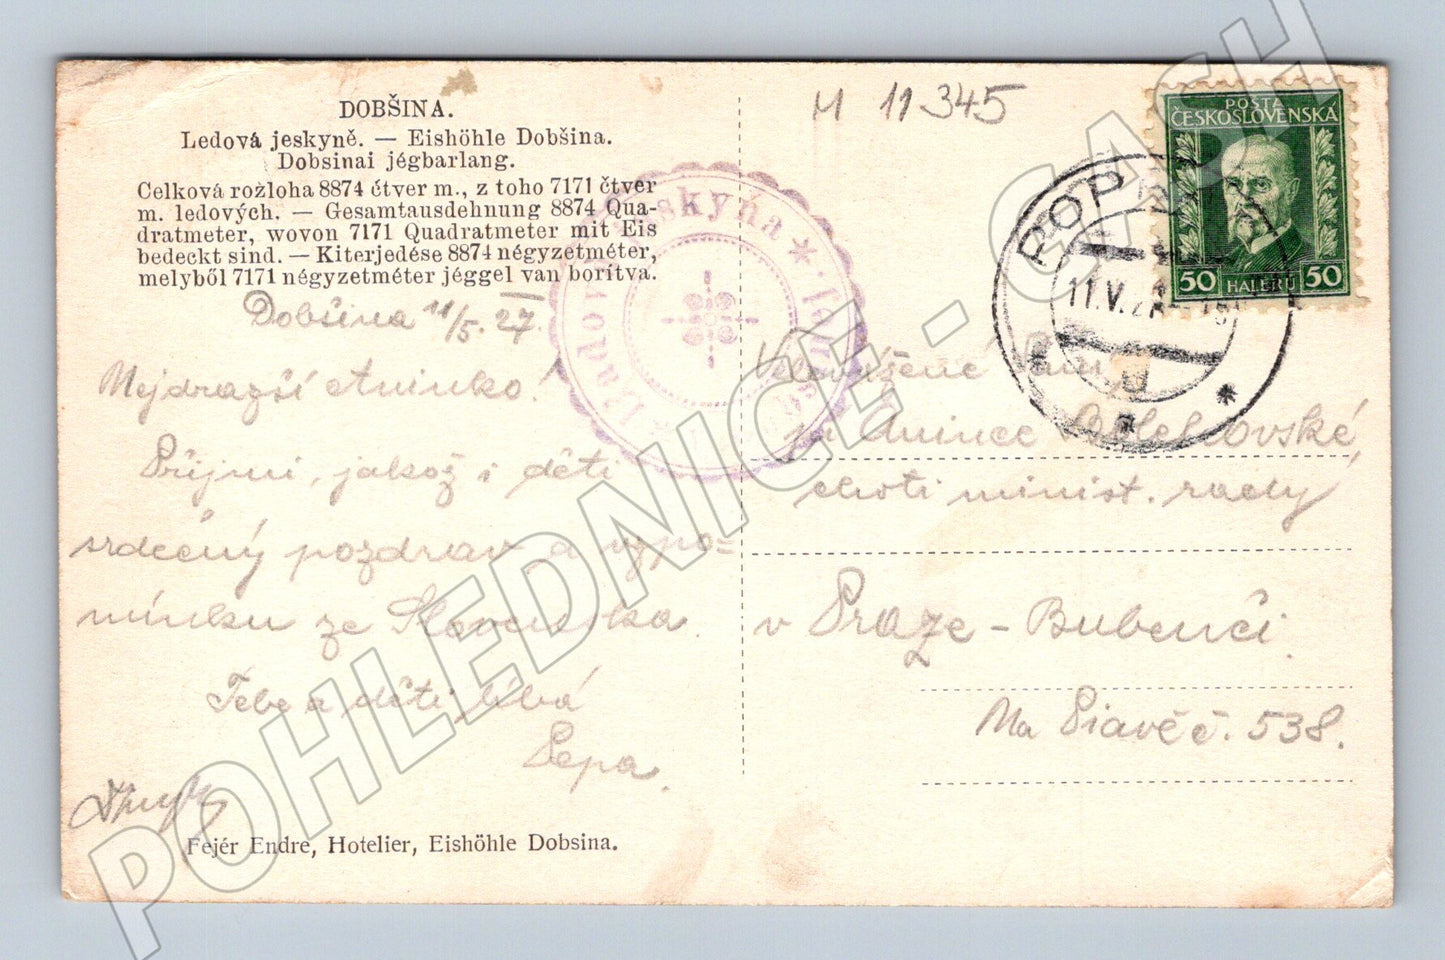 DOBŠINA.
Ledová jeskyně. — Eishöhle Dobšina.
Dobsinai jégbarlang.
Celková rožloha 8874 čtver m., z toho 7171 čtver
m. ledových. — Gesamtausdehnung 8874 Qua-
dratmeter, wovon 7171 Quadratmeter mit Eis
bedeckt sind. — Kiterjedése 8874 négyzetméter,
melyből 7171 négyzetméter jéggel van borítva.
Dobšina 11/5.27.
Nejdražší Aninko!
Přijmi, jakož i děti
srdečný pozdrav a vzpo=
mínku ze Slovenska.
Tebe a děti líbá
Pepa.
Fejér Endre, Hotelier, Eishöhle Dobsina.
M 11345
POŠTA
ČESKOSLOVENSKÁ
50 HALÉŘŮ 50
POP
11.V.2
Velevážené Paní
pí Anince
choti minist. rady
v Praze - Bubenči.
Na Piavě č. 538.
POHLEDNICE - CASH